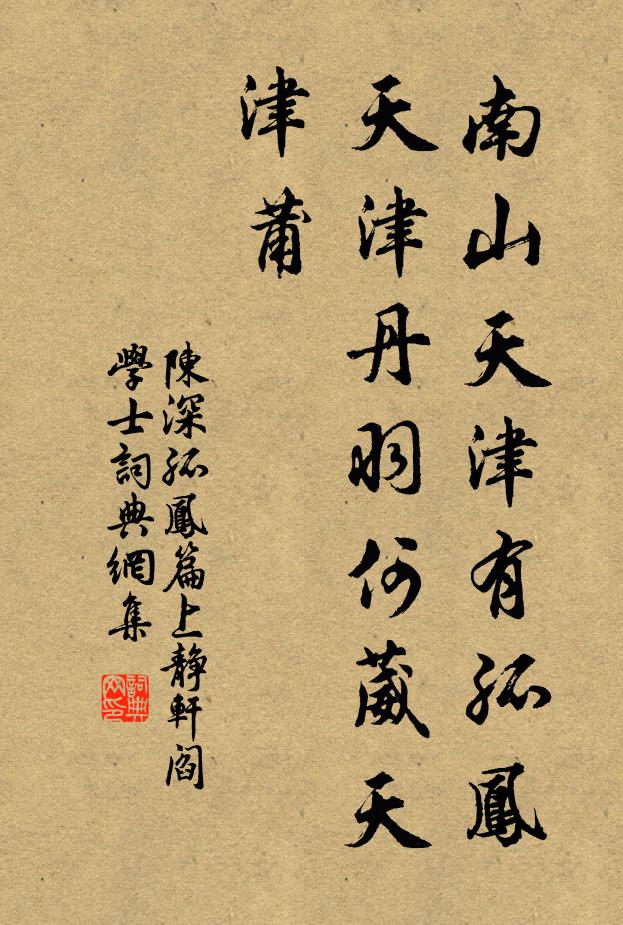 南山天津有孤鳳
天津丹羽何葳天
津莆
陳深孤鳳篇上靜軒閻
學士詞典網集
詞典